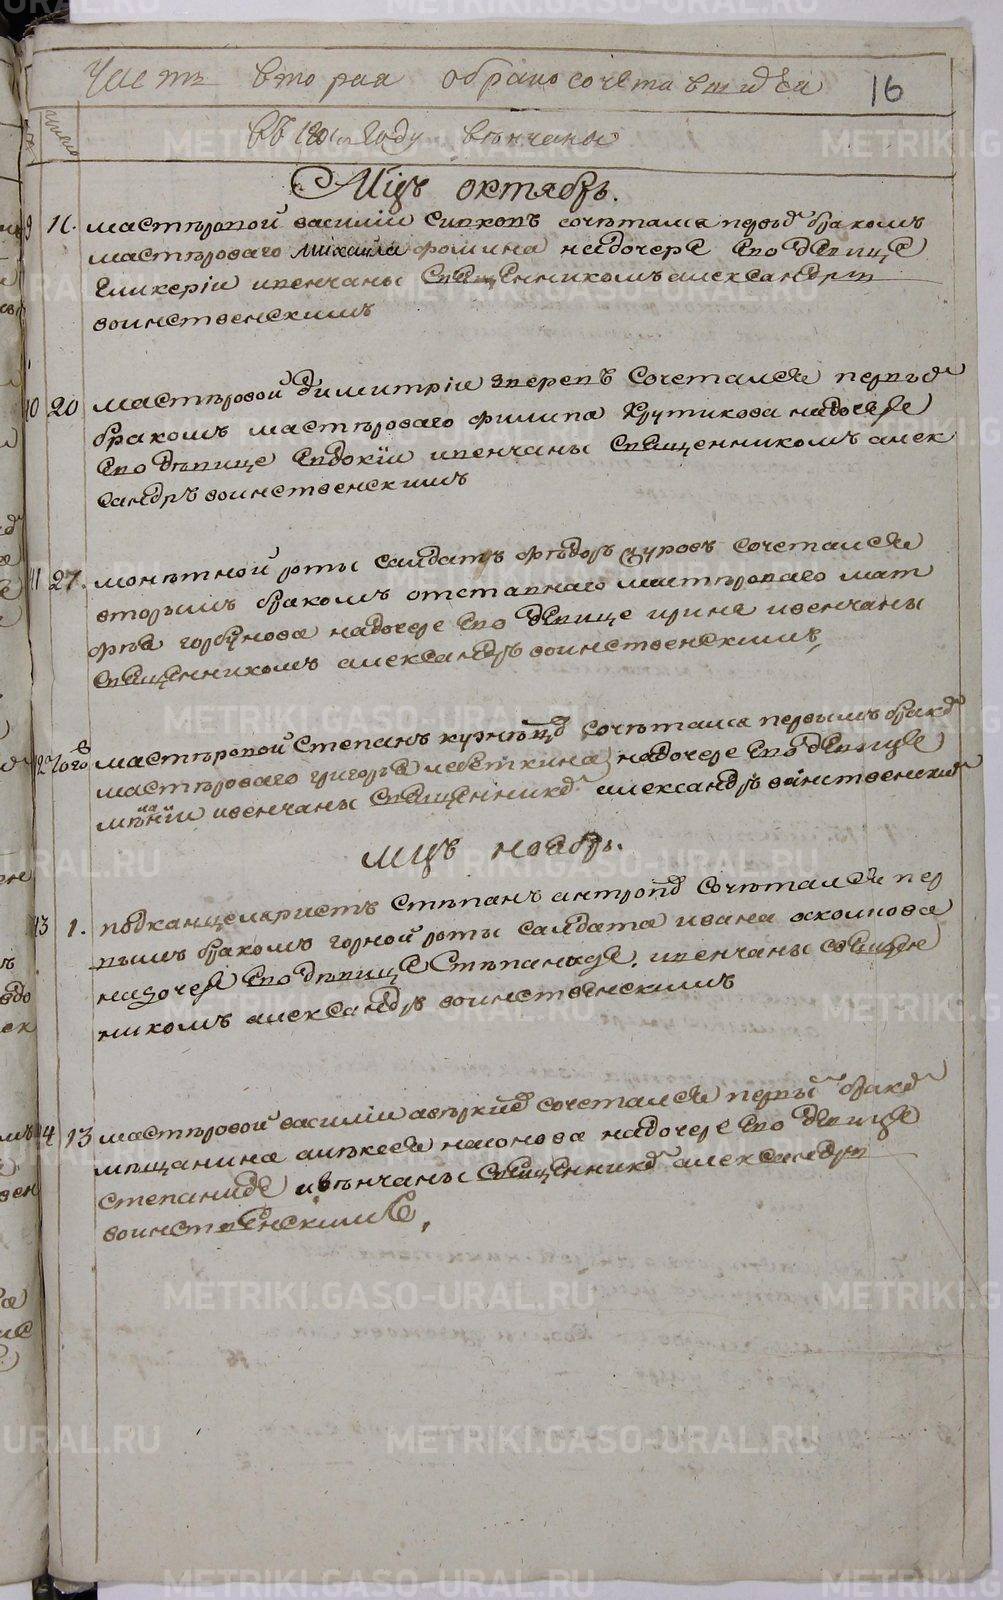 Часть вторая о бракосочетавшихся
16
въ 1801 году венчаны
Мцъ октябрь.
9 11. мастеровой василии сочетался первы бракомъ
мастероваго михаила фомина на дочере ево девице
гликерии ивенчаны священникомъ александръ
воинственскимъ
10 20 мастеровой димитрiи зверевъ сочетался первы
бракомъ мастероваго филипа крутикова надочере
ево девице евдокiи ивенчаны священникомъ алек
сандръ воинственскимъ
11 27. монетной роты салдатъ федоръ сочетался
вторымъ бракомъ отставнаго мастероваго мат
фея горбунова надочере ево девице ирине ивенчаны
священникомъ александръ воинственскимъ,
12 того мастеровой степанъ кузнецо сочетался первымъ брако
мастероваго григорья надочере ево девице
ивенчаны священнико александръ воинственски
мцъ ноябрь.
13 1. подканцеляристъ степанъ антропо сочетался пер
вымъ бракомъ горной роты салдата ивана асколкова
надочере ево девице степаниде. ивенчаны священ
никомъ александръ воинственскимъ
14 13 мастеровой василии аверкие сочетался первы брако
мещанина алексея надочере ево девице
степаниде ивенчаны священнико александръ
воинственскимъ,
METRIKI.GASO-URAL.RU